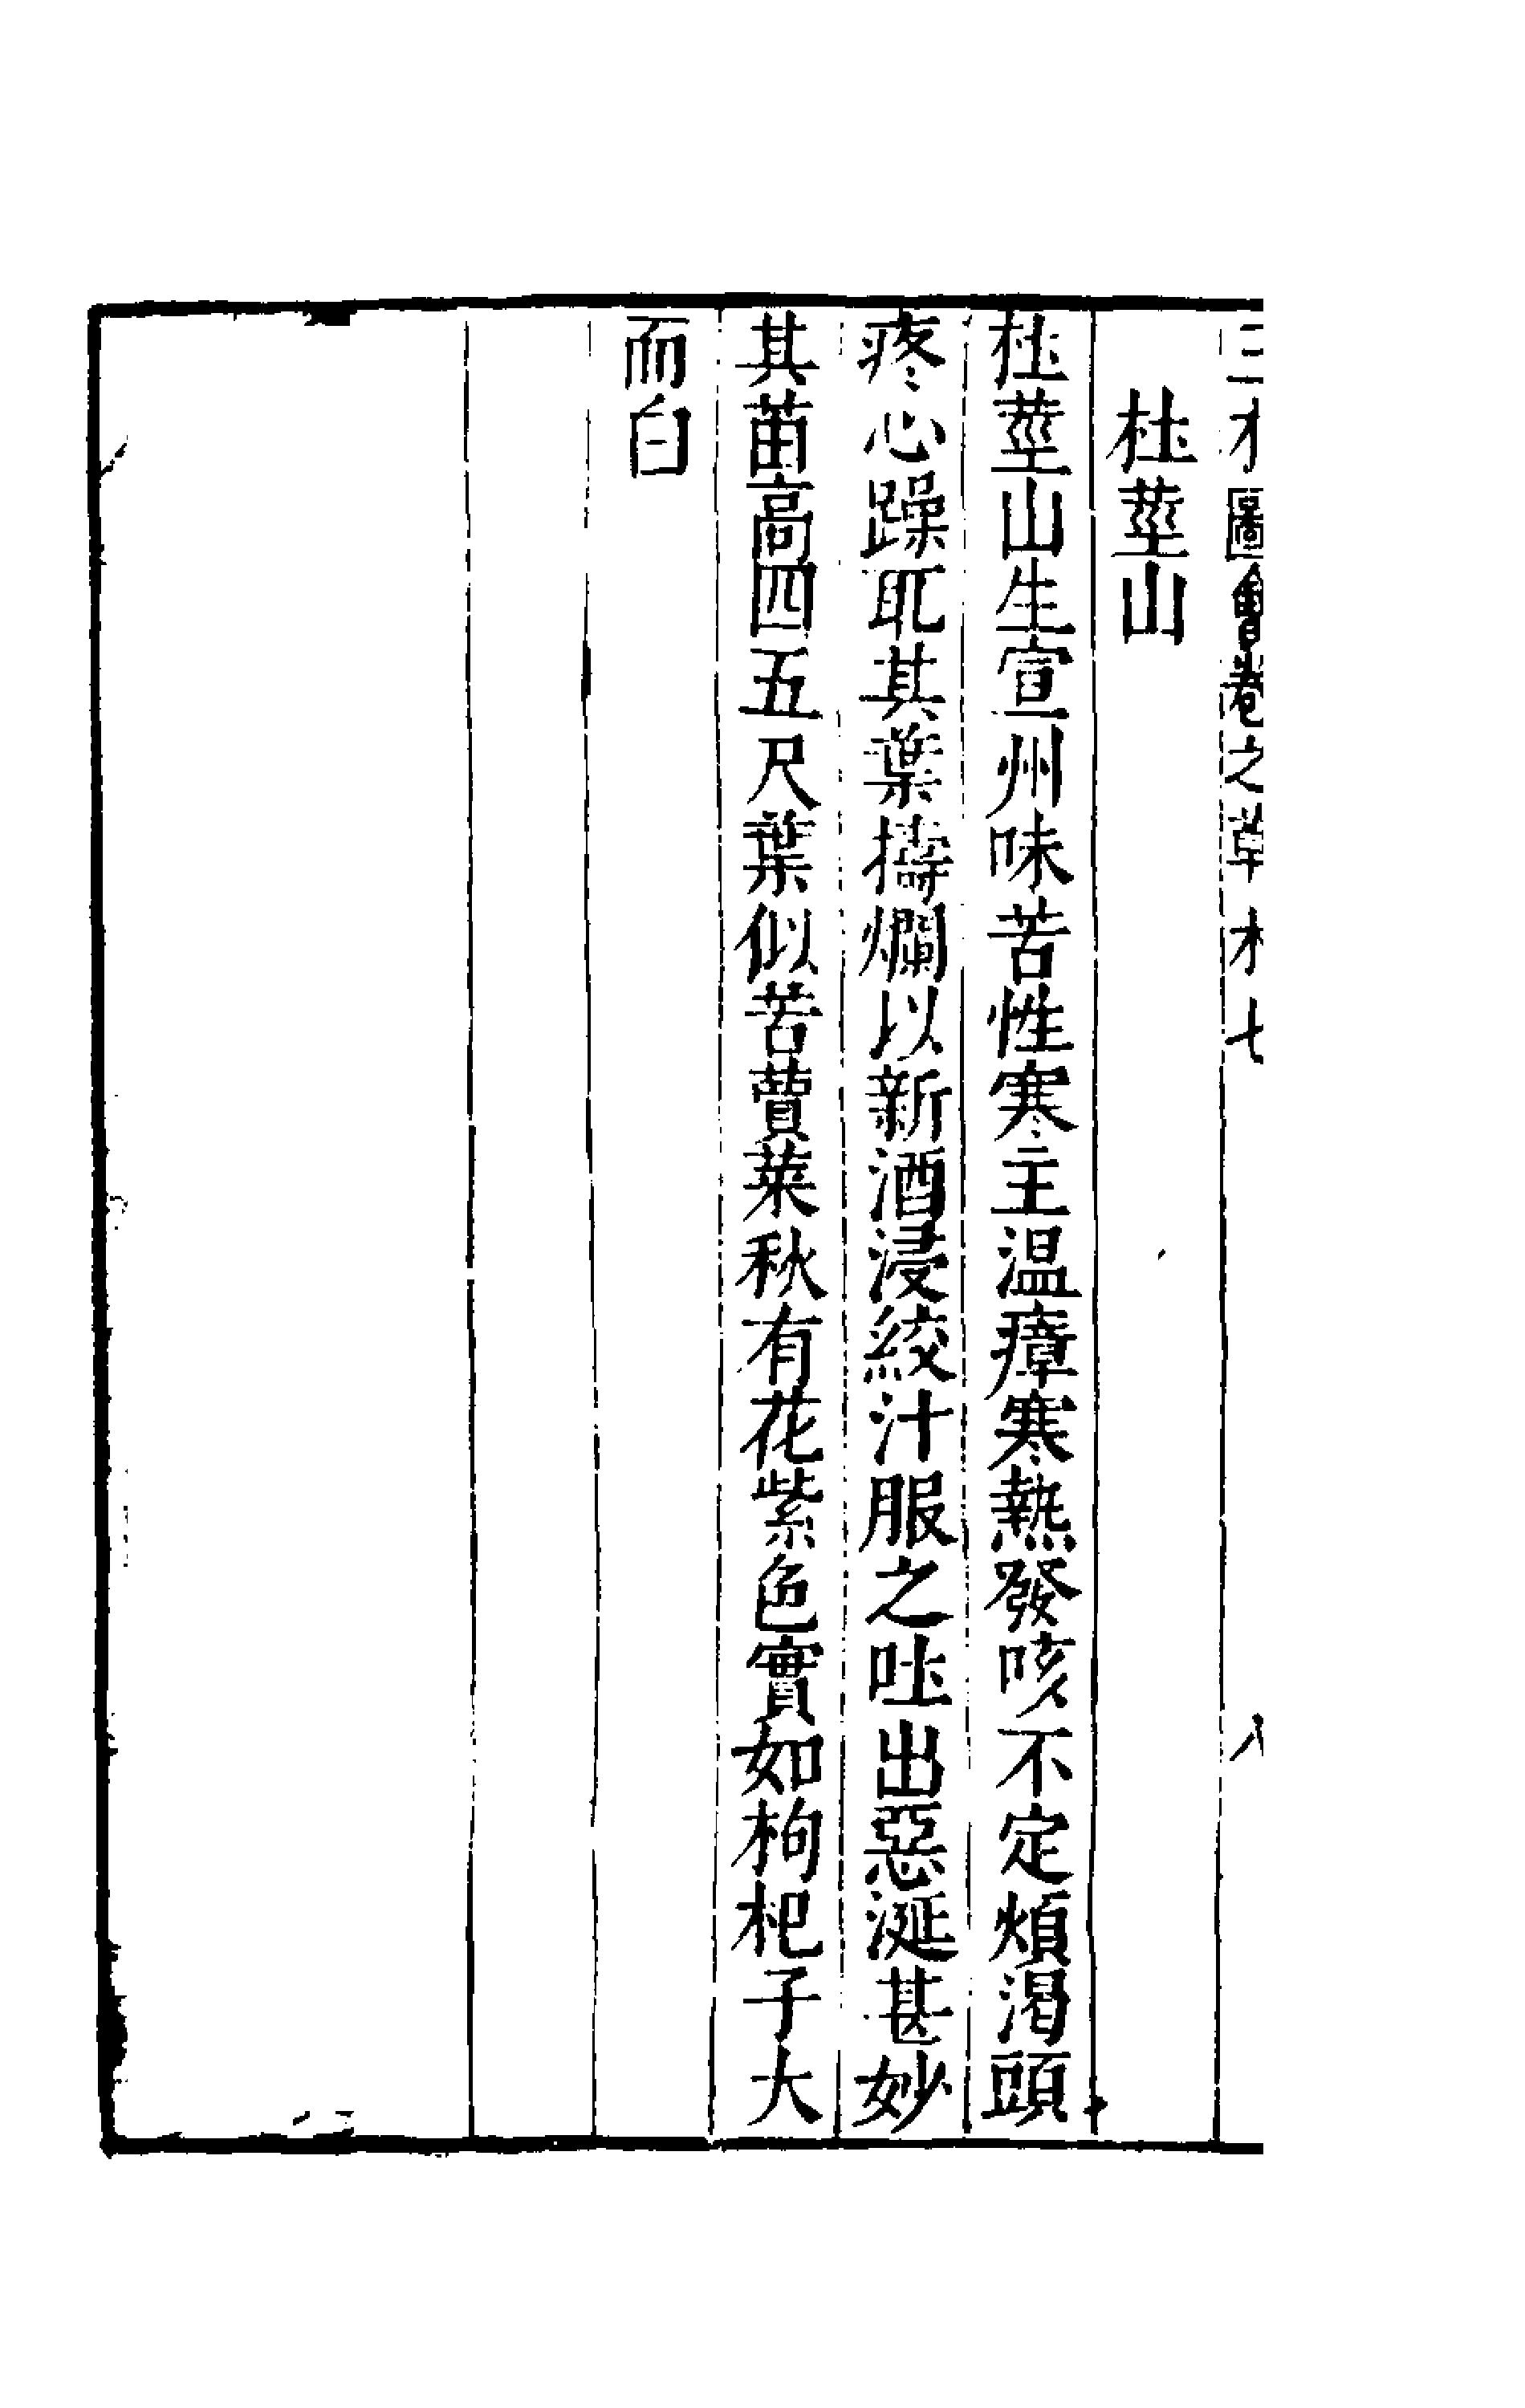 三才圖會卷之草木七 八
杜莖山
杜莖山生宣州味苦性寒主温瘴寒熱發咳不定煩渴頭
疼心躁取其葉擣爛以新酒浸絞汁服之吐出惡涎甚妙
其苗高四五尺葉似苦蕒菜秋有花紫色實如枸杞子大
而白